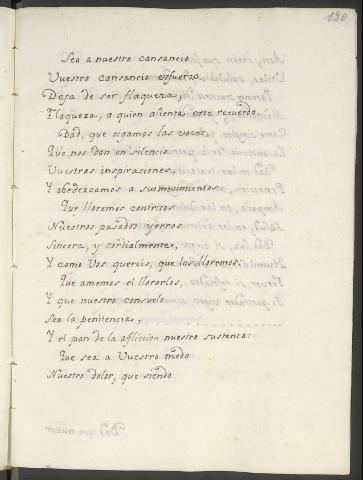 190
Sea a nuestro cansancio
Vuestro cansancio esfuerzo
Dexa de ser flaqueza,
Flaqueza, a quien alienta este recuerdo
Dad, que oigamos las voces,
Que nos dan en silencio
Vuestras inspiraciones,
Y obedezcamos a sus movimientos.
Que lloremos contritos
Nuestros pasados yerros
Sincera, y cordialmente,
Y como Vos quereis, que los lloremos.
Que amemos el llorarlos,
Y que nuestro consuelo
Sea la penitencia,
Y el pan de la afliccion nuestro sustento:
Que sea a Vuestro modo
Nuestro dolor, que siendo